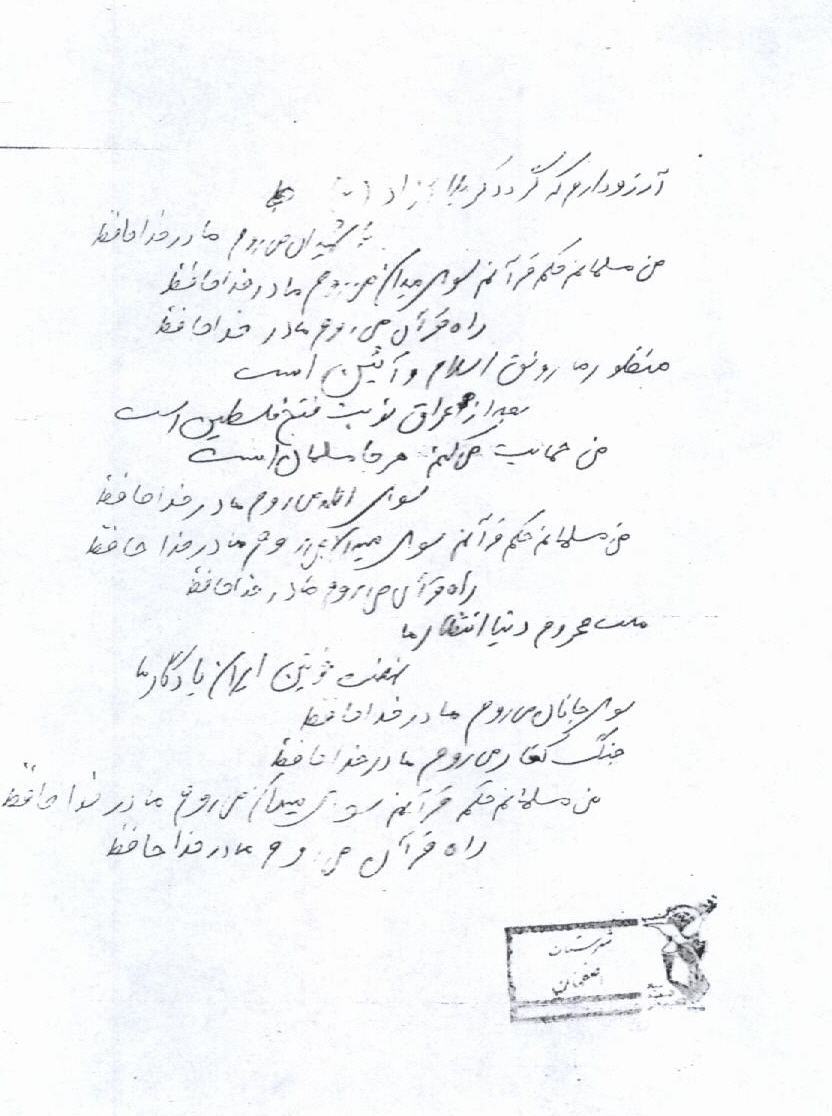 آرزو دارم که گردد کربلا آزاد (۲)
شهیدان می روم مادر خداحافظ
من مسلمانم حکم قرآنم سوی میدان می روم مادر خداحافظ
راه قرآن می روم مادر خداحافظ
منظور ما رونق اسلام و آئین است
بعد از عراق نوبت فتح فلسطین است
من حمایت می کنم هر جا مسلمان است
سوی الله می روم مادر خداحافظ
من مسلمانم حکم قرآنم سوی میدان می روم مادر خداحافظ
راه قرآن می روم مادر خداحافظ
ملت محروم دنیا انتظار ما
نهضت خونین ایران یادگار ما
سوی جانان می روم مادر خداحافظ
جنگ کفار می روم مادر خداحافظ
من مسلمانم حکم قرآنم سوی میدان می روم مادر خداحافظ
راه قرآن می روم مادر خداحافظ
شهرستان